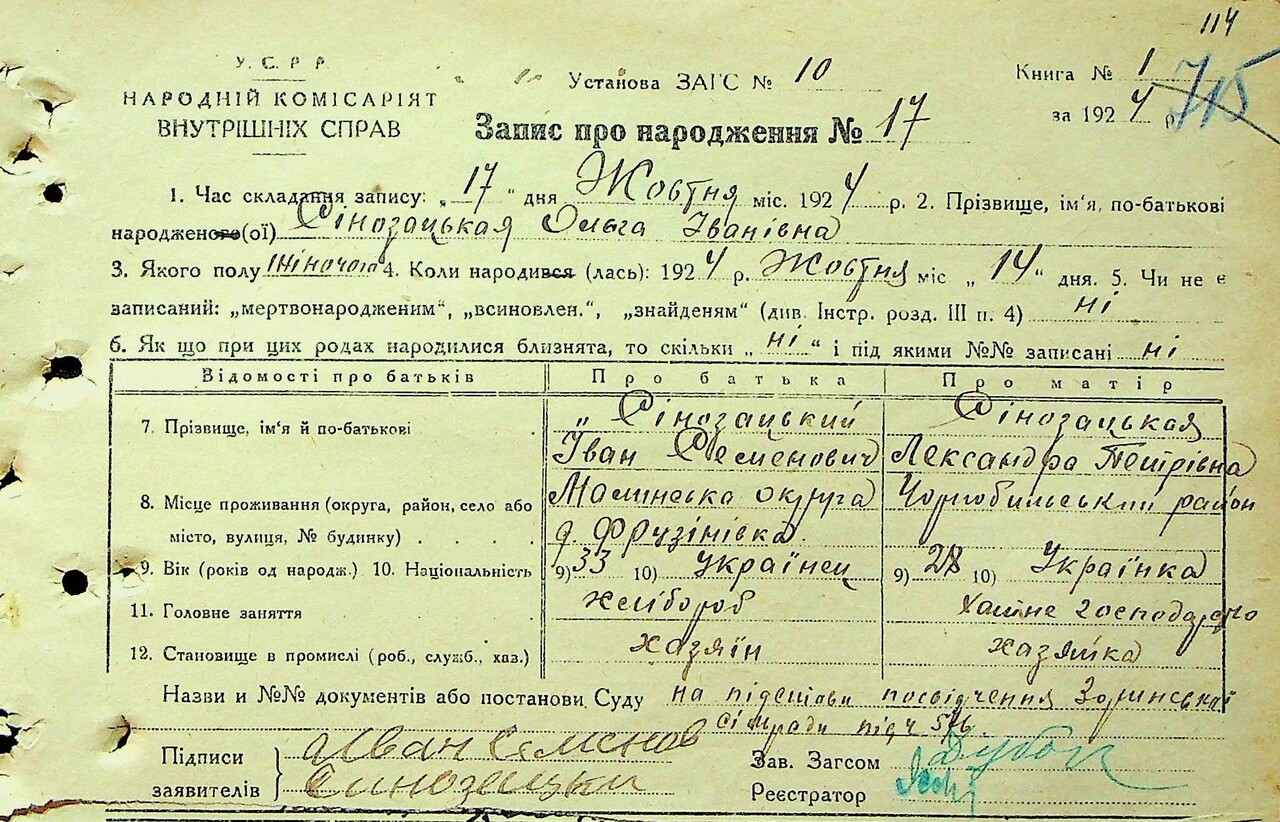 114
У.С.Р Р
НАРОДНІЙ КОМІСАРІЯТ
ВНУТРІШНІХ СПРАВ
Установа ЗАГС № 10
Книга № 1
715
за 1924 р.
Запис про народження № 17
1. Час складання запису: „17“ дня Жовтня міс. 1924 р. 2. Прізвище, ім‘я, по-батькові
народженого(ої) Сінозацькая Ольга Іванівна
3. Якого полу жіночого 4. Коли народився (лась): 1924 р. Жовтня міс „14“ дня. 5. Чи не є
записаний: „мертвонародженим“, „всиновлен.“, „знайденям“ (див. Інстр. розд. III п. 4) ні
6. Як що при цих родах народилися близнята, то скільки „ні“ і під якими №№ записані ні
Відомості про батьків Про батька Про матір
7. Прізвище, ім‘я й по-батькові . „ Сінозацький Сінозацькая
Іван Семенович Лександра Петрівна
8. Місце проживання (округа, район, село або Малинська округа Чорнобильський район
місто, вулиця, № будинку) . . . . д. Фрузінівка.
9. Вік (років од народж.) 10. Національність 9) 33 10) Українец 9) 28 10) Українка
11. Головне заняття . хлібороб хатне господарство
12. Становище в промислі (роб., служб., хаз.) хазяїн хазяйка
Назви и №№ документів або постанови Суду на підстави посвідчення Зоринської
сільради під ч 576.
Підписи Иван Семенов
заявителів Синозацки
Зав. Загсом
Реєстратор